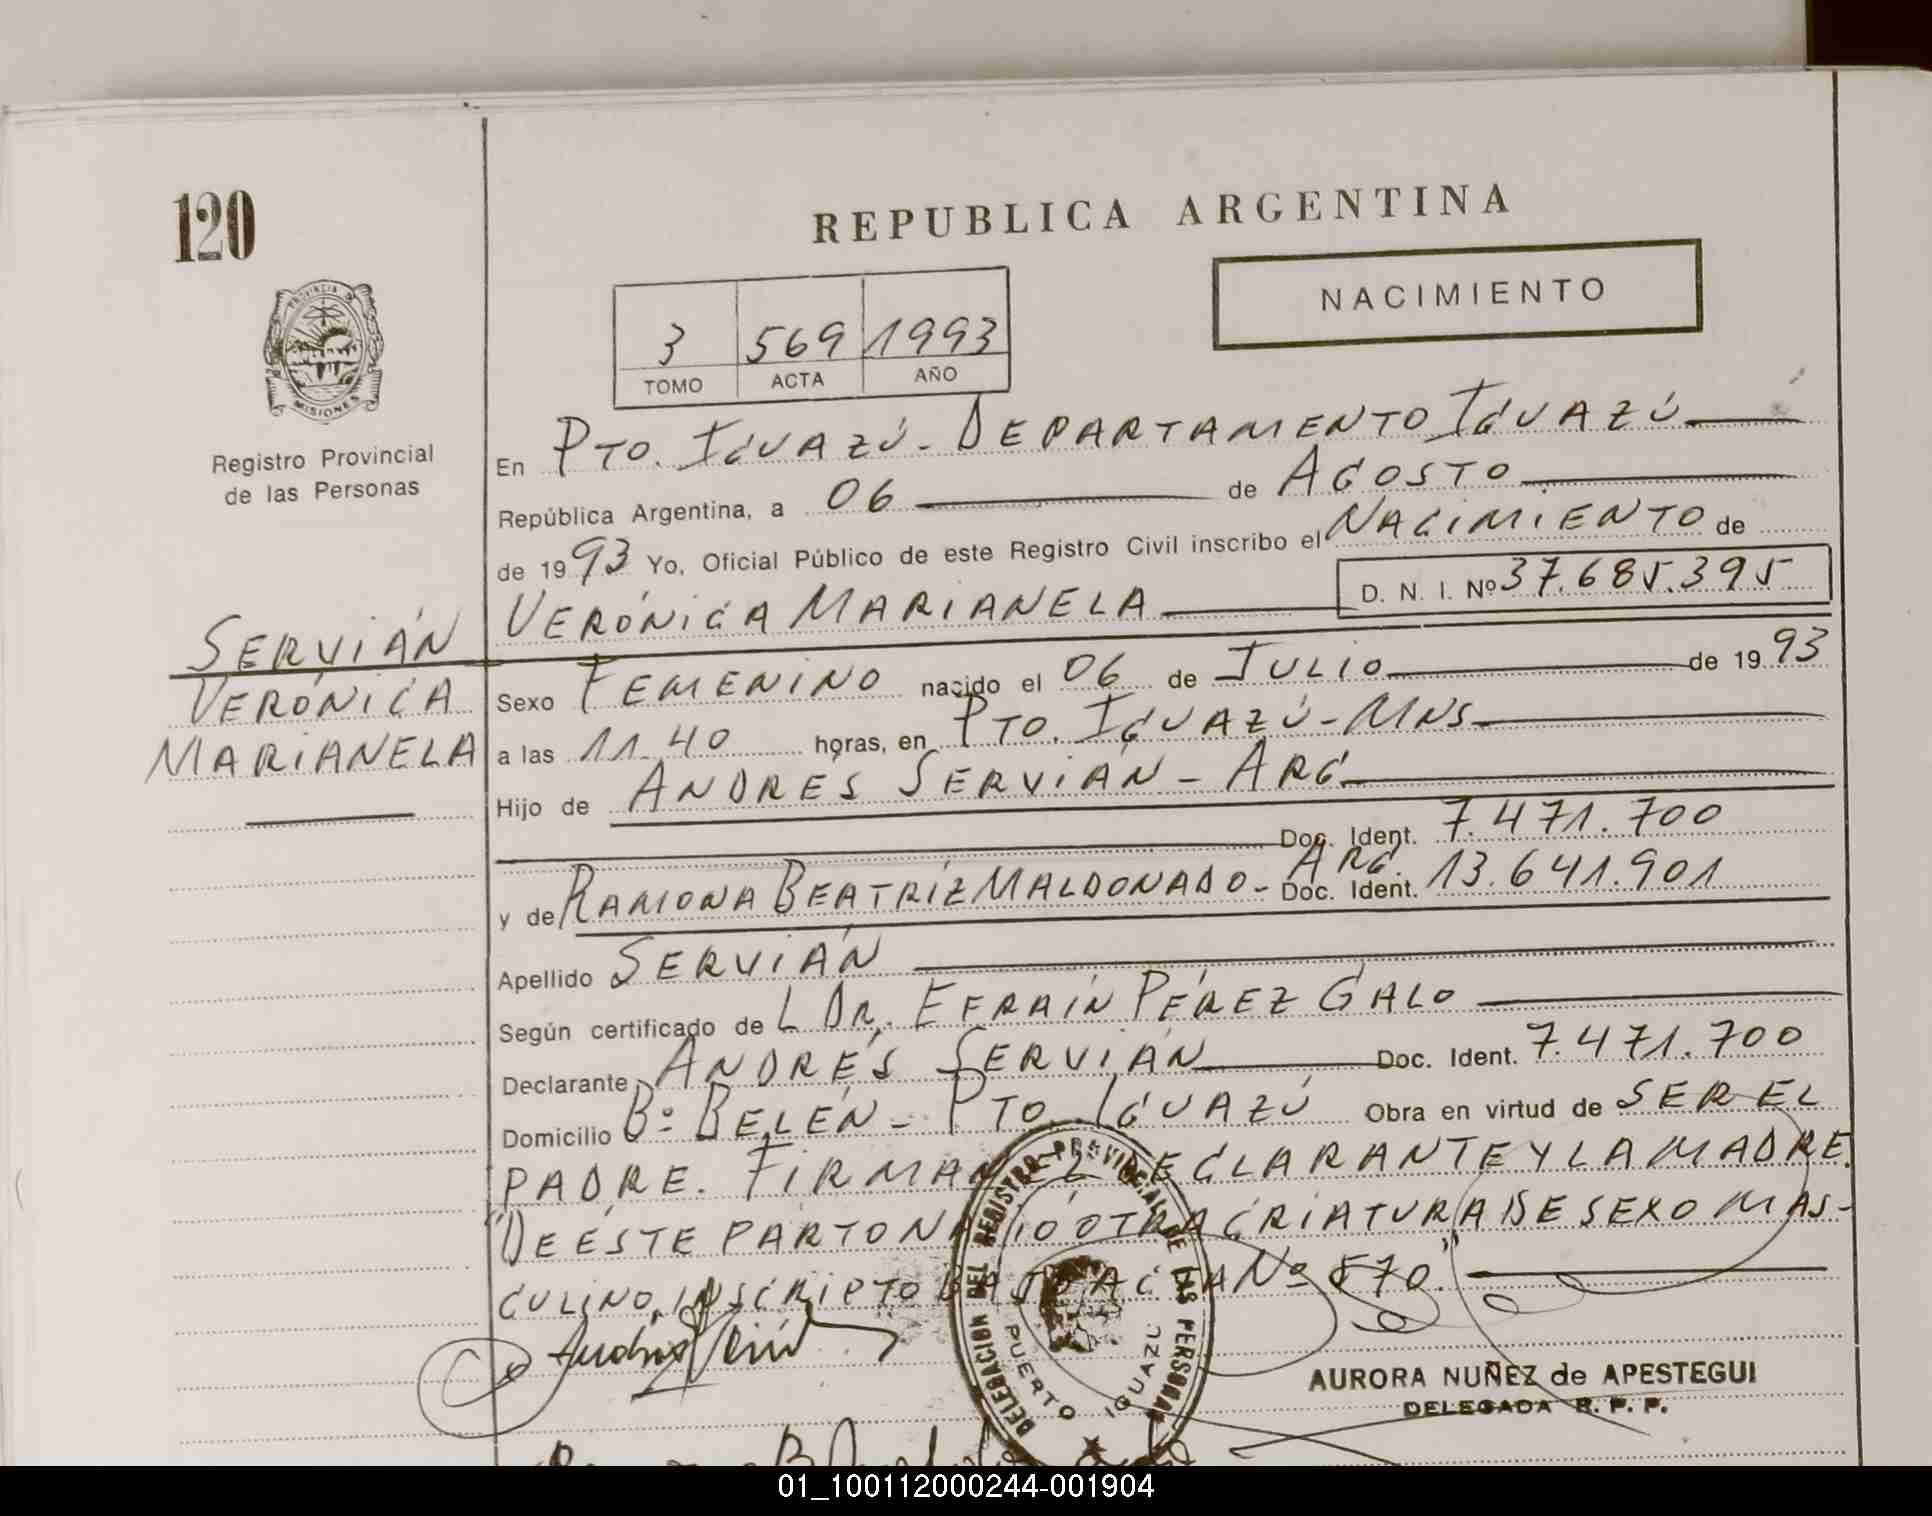 120
REPUBLICA ARGENTINA
NACIMIENTO
3 569 1993
TOMO ACTA AÑO
PROVINCIA D
MISIONES
Registro Provincial
de las Personas
En PTO. IGUAZÚ - DEPARTAMENTO IGUAZÚ
República Argentina, a 06 de AGOSTO
de 1993 Yo, Oficial Público de este Registro Civil inscribo el NACIMIENTO de
VERÓNICA MARIANELA D. N. I. Nº 37.685.395
SERVIÁN
VERÓNICA
MARIANELA
Sexo FEMENINO nacido el 06 de JULIO de 1993
a las 11-40 horas, en PTO. IGUAZÚ - MNS
Hijo de ANDRÉS SERVIÁN - ARG.
Doc. Ident. 7.471.700
y de RAMONA BEATRÍZ MALDONADO - ARG. Doc. Ident. 13.641.901
Apellido SERVIÁN
Según certificado de L DR. EFRAÍN PÉREZ GALO
Declarante ANDRÉS SERVIÁN Doc. Ident. 7.471.700
Domicilio Bº BELÉN - PTO. IGUAZÚ Obra en virtud de SER EL
PADRE. FIRMAN EL DECLARANTE Y LA MADRE.
"DE ÉSTE PARTO NACIÓ OTRA CRIATURA DE SEXO MAS-
CULINO, INSCRIPTO BAJO ACTA Nº 570."
DELEGACION DEL REGISTRO PROVINCIAL DE LAS PERSONAS
PUERTO IGUAZU
AURORA NUÑEZ de APESTEGUI
DELEGADA R. P. P.
01_100112000244-001904